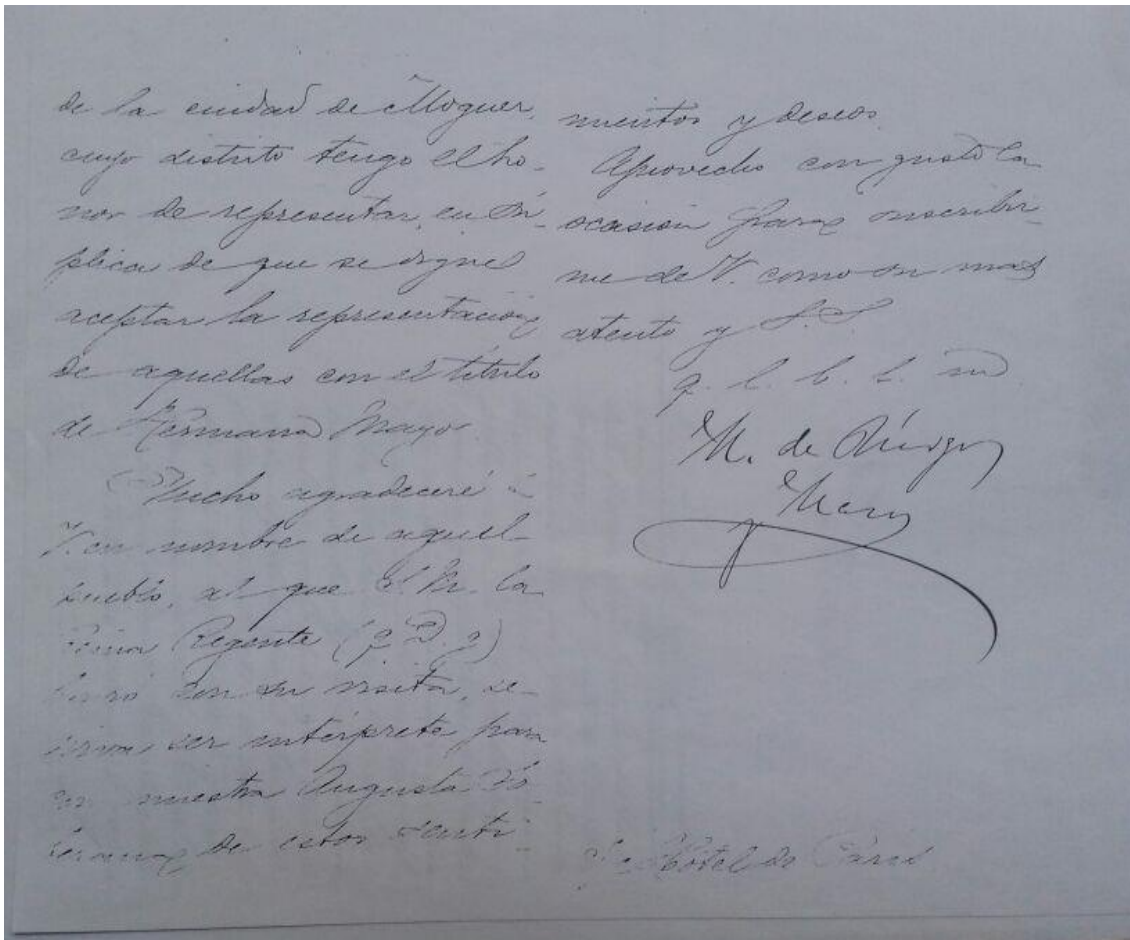 de la ciudad de Moguer,
cuyo distrito tengo el ho-
nor de representar, en sú-
plica de que se digne
aceptar la representación
de aquellas con el título
de Hermana Mayor.
Mucho agradeceré á
V. en nombre de aquel
pueblo, al que S. M. la
Reina Regente (q. D. g.)
honró con su visita, se
sirva ser intérprete para
con nuestra Augusta So-
berana de estos senti-
mientos y deseos.
Aprovecho con gusto la
ocasión para suscribir-
me de V. como su mas
atento y S. S.
q. l. b. l. m
M. de Búrgos
y Mazo
S/c Hotel de